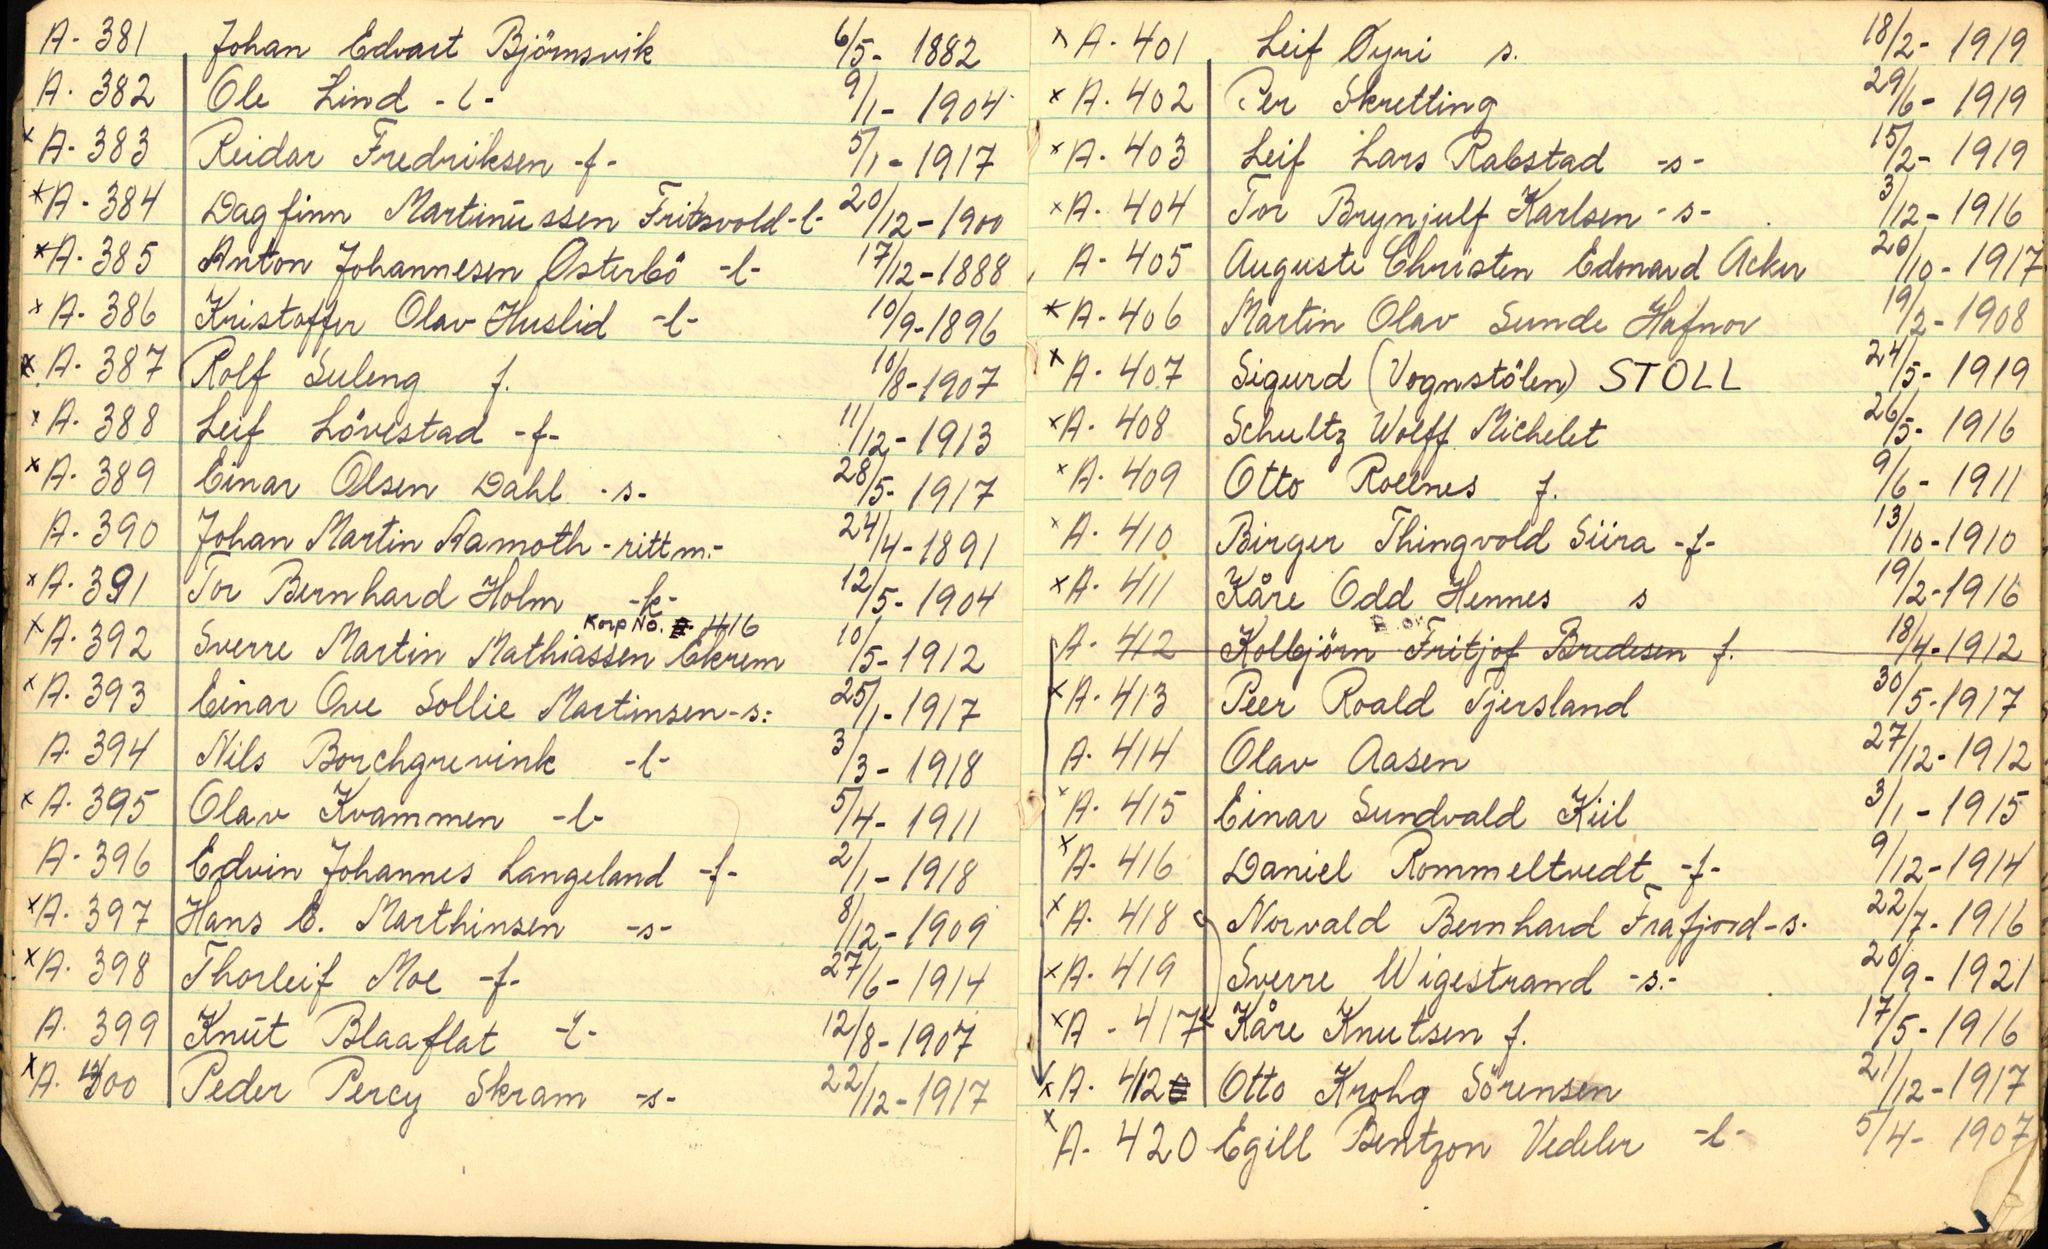 A. 381 Johan Edvart Björnsvik 6/5- 1882
A. 382 Ole Lind -l- 9/1- 1904
x A. 383 Reidar Fredriksen -f- 5/1- 1917
x A. 384 Dagfinn Martinussen Fritsvold -l- 20/12- 1900
x A. 385 Anton Johannesen Österbö -l- 17/12- 1888
x A. 386 Kristoffer Olav Huslid -l- 10/9- 1896
x A. 387 Rolf Suleng f. 10/8- 1907
x A. 388 Leif Lövestad -f- 11/12- 1913
x A. 389 Einar Olsen Dahl -s- 28/5- 1917
A. 390 Johan Martin Ramoth -rittm.- 24/4- 1891
x A. 391 Tor Bernhard Holm -k- 12/5- 1904
Korp No. 1416
x A. 392 Sverre Martin Mathiassen Ekrem 10/5- 1912
x A. 393 Einar Ove Sollie Martinsen -s- 25/1- 1917
A. 394 Nils Borchgrevink -l- 3/3- 1918
x A. 395 Olav Kvammen -l- 5/4- 1911
A. 396 Edvin Johannes Langeland -f- 2/1- 1918
x A. 397 Hans E. Marthinsen -s- 8/12- 1909
x A. 398 Thorleif Moe -f- 27/6- 1914
A. 399 Knut Blaaflat -l- 12/8- 1907
x A. 400 Peder Percy Skram -s- 22/12- 1917
x A. 401 Leif Öyri s. 18/2- 1919
x A. 402 Per Skretting 29/6- 1919
x A. 403 Leif Lars Rabstad -s- 15/2- 1919
x A. 404 Tor Brynjulf Karlsen -s- 3/12- 1916
A. 405 Auguste Christen Edonard Acker 20/10- 1917
x A. 406 Martin Olav Sunde Hafnor 19/2- 1908
x A. 407 Sigurd (Vognstölen) STOLL 24/5- 1919
x A. 408 Schultz Wolff Michelet 26/5- 1916
x A. 409 Otto Rollnes f. 9/6- 1911
x A. 410 Birger Thingvold Siira -f- 13/10- 1910
x A. 411 Kåre Odd Hennes s 19/2- 1916
A. 412 Kolbjörn Fritjof Bredesen f. 18/4- 1912
x A. 413 Peer Roald Tjersland 30/5- 1917
A. 414 Olav Aasen 27/12- 1912
x A. 415 Einar Sundvald Kiil 3/1- 1915
x A. 416 Daniel Rommeltvedt -f- 9/12- 1914
x A. 418 Norvald Bernhard Frafjord -s. 22/7- 1916
x A. 419 Sverre Wigestrand -s.- 20/9- 1921
x A. 417 Kåre Knutsen f. 17/5- 1916
x A. 412 Otto Krohg Sörensen 21/12- 1917
x A. 420 Egill Bentzon Vedeler -l- 5/4- 1907